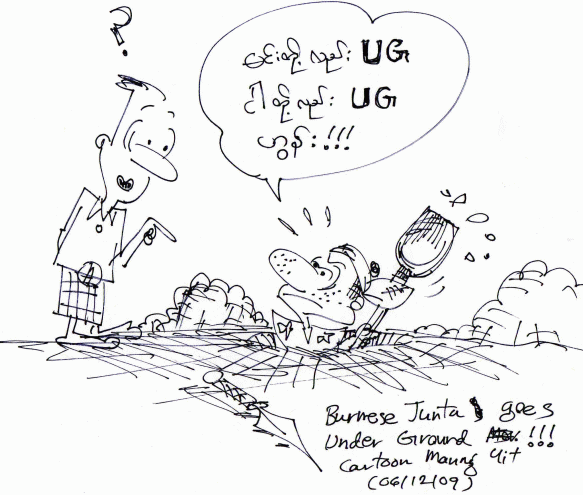 ?
မင်းတို့လည်း UG
ငါတို့လည်း UG
ဟွန်း!!!
Burmese Junta goes
Under Ground !!!
Cartoon Maung Yit
(06/12/09)